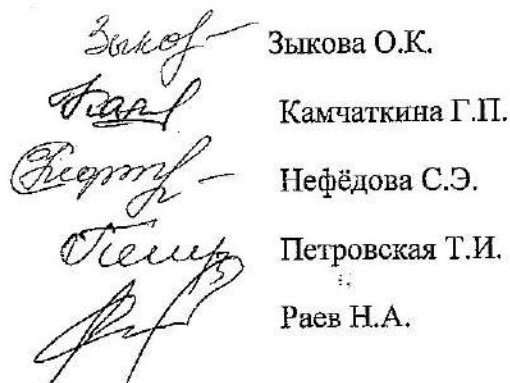 Зыков Зыкова О.К.
Камчаткина Г.П.
Нефёдова С.Э.
Петровская Т.И.
Раев Н.А.